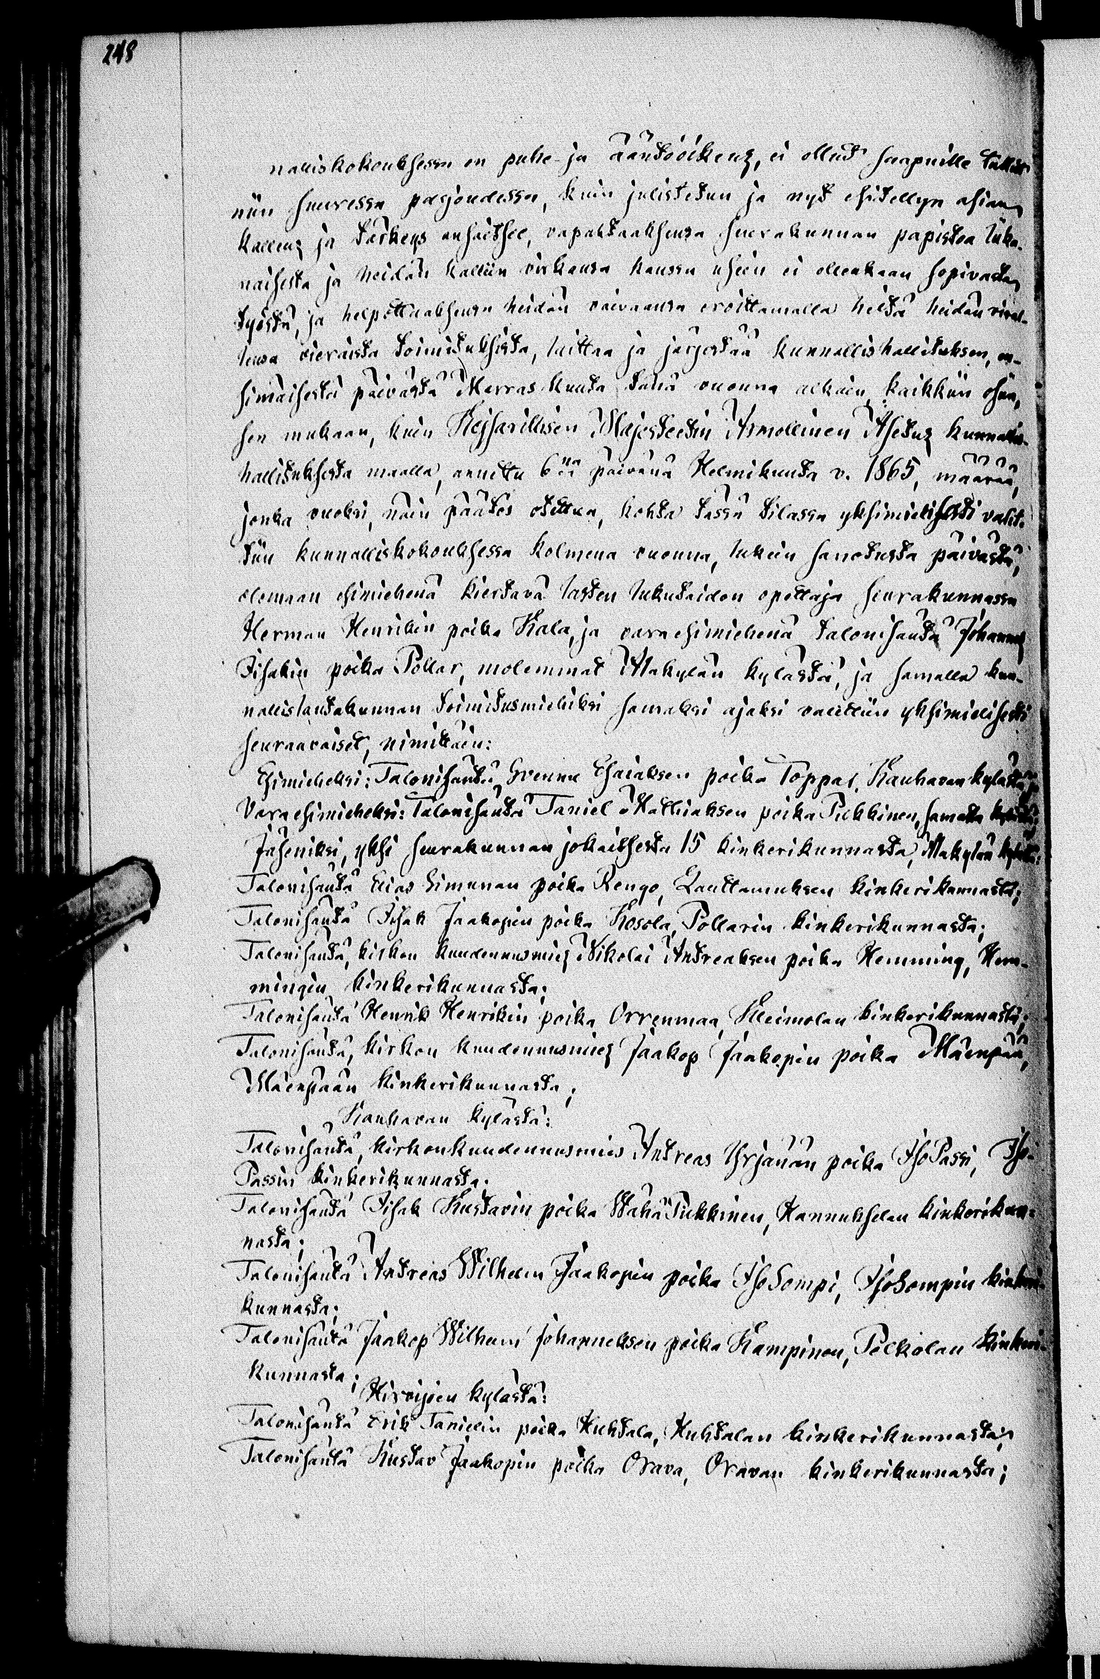 248
nalliskokouksessa on puhe- ja ääntöoikeus, ei ollut saapuille tullut
niin suuressa paljoudessa, kuin julistetun ja nyt esitellyn asian
kalleus ja tärkeys ansaitsee, vapahtaaksensa seurakunnan papistoa liika-
naisesta ja heidän kalliin virkansa kanssa usein ei ollenkaan sopivasta
työstä, ja helpottaaksensa heidän vaivaansa eroittamalla heiltä heidän viral-
lensa vieraista toimituksista, laittaa ja järjestää kunnallishallituksen, en-
simäisestä päivästä Marraskuuta tänä vuonna alkain, kaikkiin osiin,
sen mukaan, kuin Keisarillisen Majesteetin Armollinen Asetus kunnallis-
hallituksesta maalla, annettu 6na päivänä Helmikuuta v. 1865, määrää,
jonka vuoksi, näin päätös otettua, kohta tässä tilassa yksimielisesti valit-
tiin kunnalliskokouksessa kolmena vuonna, lukein sanotusta päivästä,
olemaan esimiehenä kiertävä lasten lukutaidon opettaja seurakunnassa
Herman Henrikin poika Kala, ja varaesimiehenä talonisäntä Johannes
Iisakin poika Pollar, molemmat Alakylän kylästä, ja samalla kun-
nallislautakunnan toimitusmiehiksi samaksi ajaksi valittiin yksimielisesti
seuraavaiset, nimittäin:
Esimieheksi: Talonisäntä, Esaiaksen poika Töppal, Kauhavan kylästä,
Varaesimieheksi: Talonisäntä Taniel Matthiaksen poika Pukkinen, samasta kylästä
Jäseniksi, yksi seurakunnan jokaitsesta 15 kinkerikunnasta, Alakylän kylästä:
Talonisäntä Elias Simunan poika Rengo, Lauttamuksen kinkerikunnasta;
Talonisäntä Iisak Jaakopin poika Kosola, Pollarin kinkerikunnasta;
Talonisäntä, kirkon kuudennusmies Nikolai Andreaksen poika Hemming, Hem-
mingin kinkerikunnasta;
Talonisäntä Henrik Henrikin poika Orrenmaa, Kleimolan kinkerikunnasta;
Talonisäntä, kirkon kuudennusmies Jaakop Jaakopin poika Mäenpää,
Mäenpään kinkerikunnasta;
Kauhavan kylästä:
Talonisäntä, kirkonkuudennusmies Antreas Yrjänän poika IsoPassi, Iso-
Passin kinkerikunnasta;
Talonisäntä Iisak Kustavin poika WähäPukkinen, Hannukselan kinkerikun-
nasta;
Talonisäntä Antreas Wilhelm Jaakopin poika IsoSompi, IsoSompin kinkeri-
kunnasta;
Talonisäntä Jaakop Wilhelm Johanneksen poika Kampinen, Pelkolan kinkeri-
kunnasta;
Hirvijoen kylästä:
Talonisäntä Erik Tanielin poika Huhtala, Huhtalan kinkerikunnasta;
Talonisäntä Kustav Jaakopin poika Orava, Oravan kinkerikunnasta;